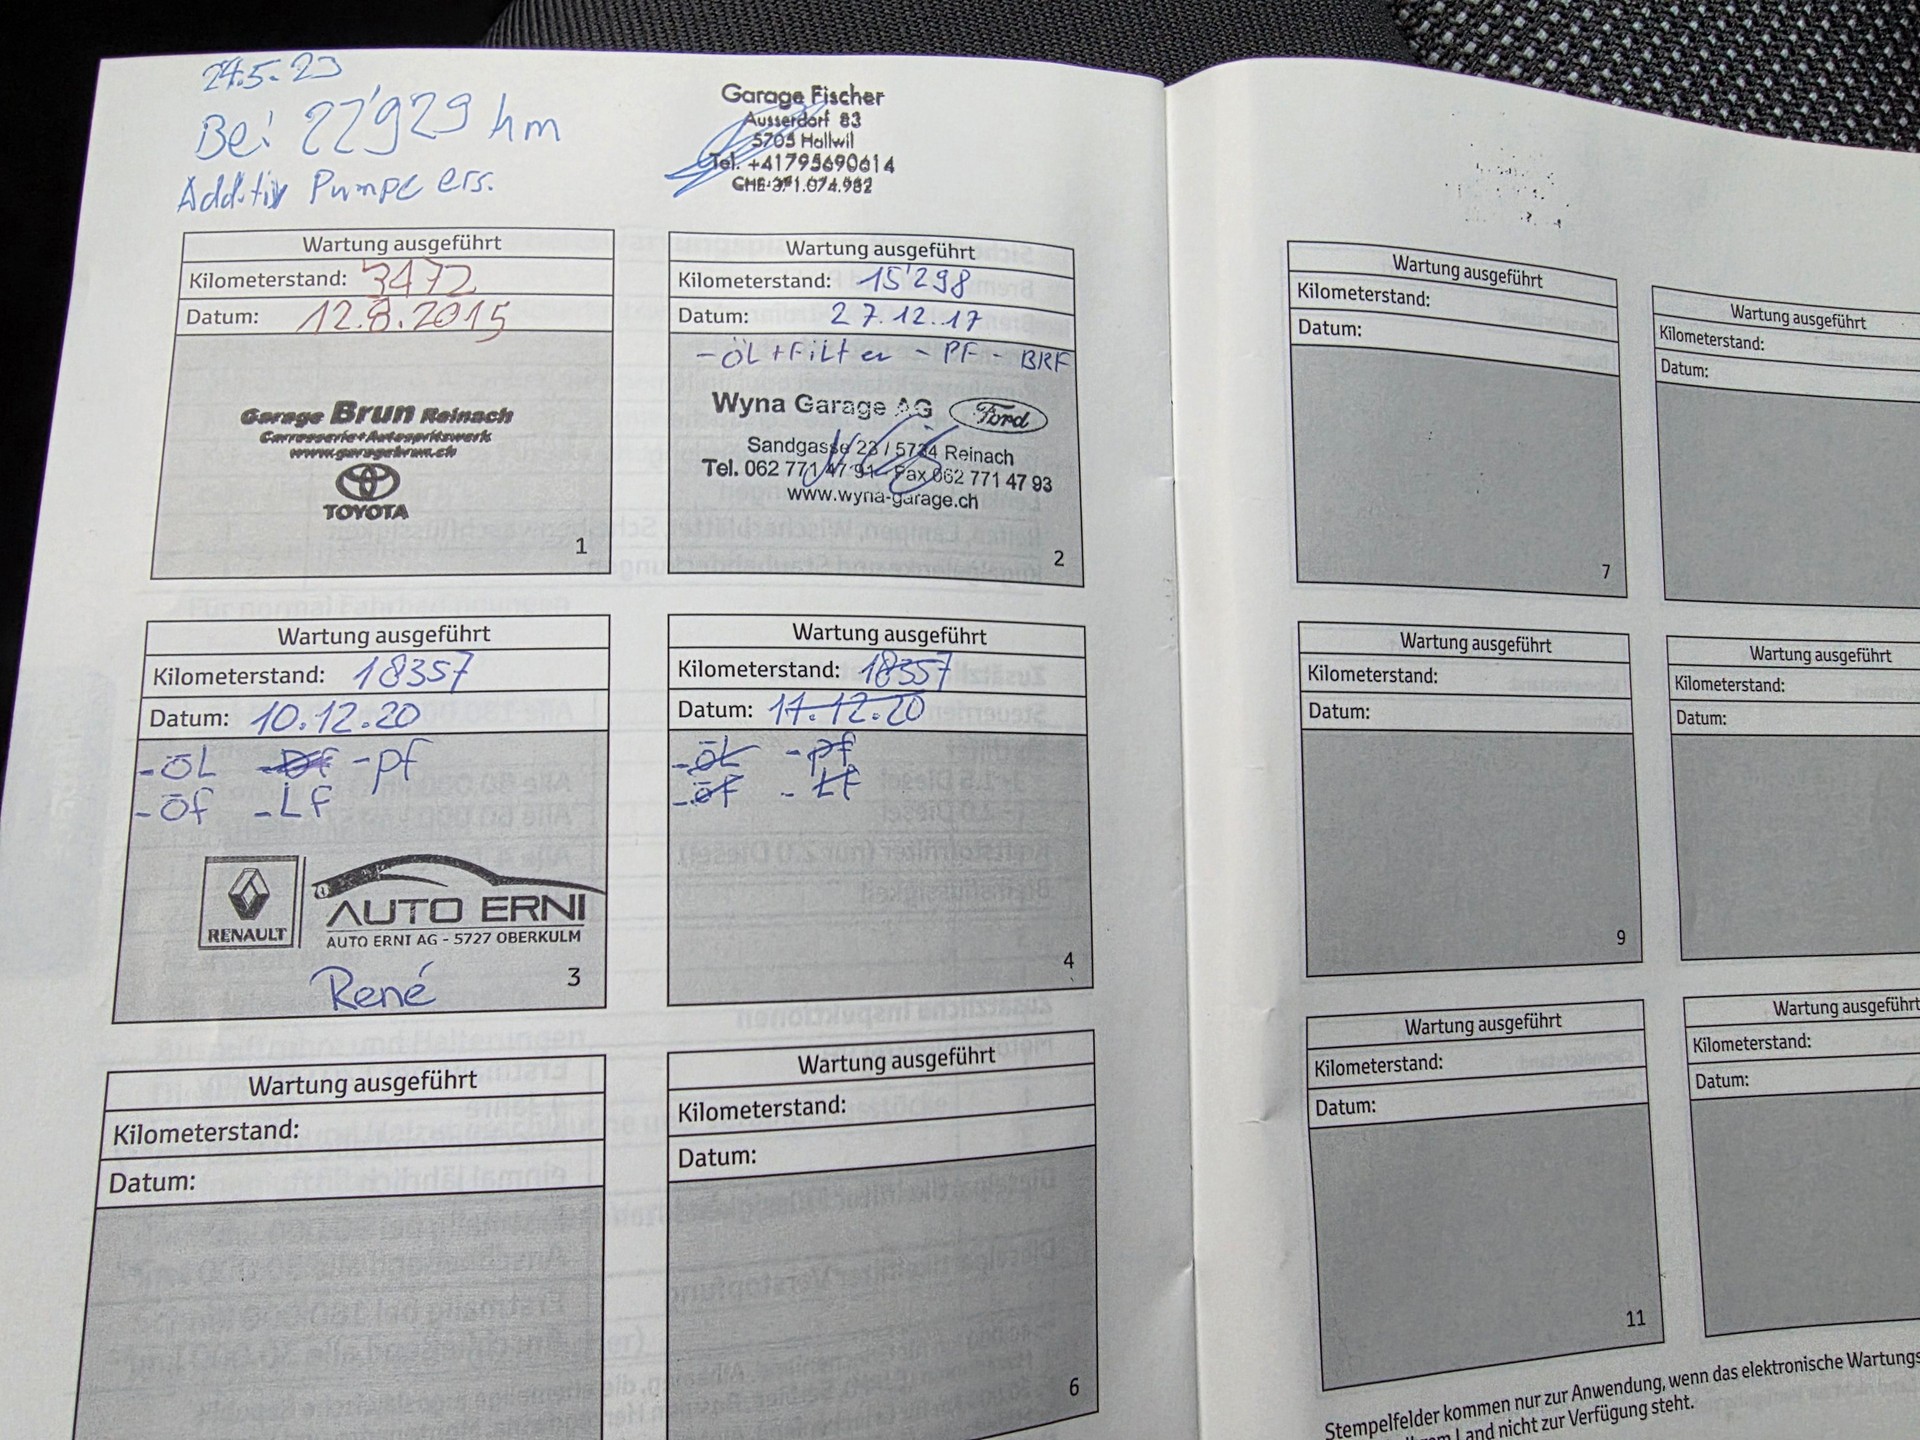 24.5.23
Bei 22'929 km
Additiv Pumpe ers.
Garage Fischer
Ausserdorf 83
5705 Hallwil
Tel. +41795690614
CHE-371.074.982
Wartung ausgeführt
Kilometerstand: 3472
Datum: 12.8.2015
Garage Brun Reinach
Carrosserie+Autospritzwerk
www.garagebrun.ch
TOYOTA
1
Wartung ausgeführt
Kilometerstand: 15'298
Datum: 27.12.17
-ÖL+Filter - PF - BRF
Wyna Garage AG Ford
Sandgasse 23 / 5734 Reinach
Tel. 062 771 47 91 - Fax 062 771 47 93
www.wyna-garage.ch
2
Wartung ausgeführt
Kilometerstand: 18357
Datum: 10.12.20
-ÖL -pf
-Öf -Lf
RENAULT
AUTO ERNI
AUTO ERNI AG - 5727 OBERKULM
René
3
Wartung ausgeführt
Kilometerstand: 18357
Datum: 11.12.20
-ÖL -pf
-Öf -Lf
4
Wartung ausgeführt
Kilometerstand:
Datum:
Wartung ausgeführt
Kilometerstand:
Datum:
6
Wartung ausgeführt
Kilometerstand:
Datum:
7
Wartung ausgeführt
Kilometerstand:
Datum:
Wartung ausgeführt
Kilometerstand:
Datum:
9
Wartung ausgeführt
Kilometerstand:
Datum:
Wartung ausgeführt
Kilometerstand:
Datum:
11
Wartung ausgeführt
Kilometerstand:
Datum:
Stempelfelder kommen nur zur Anwendung, wenn das elektronische Wartungs
Land nicht zur Verfügung steht.